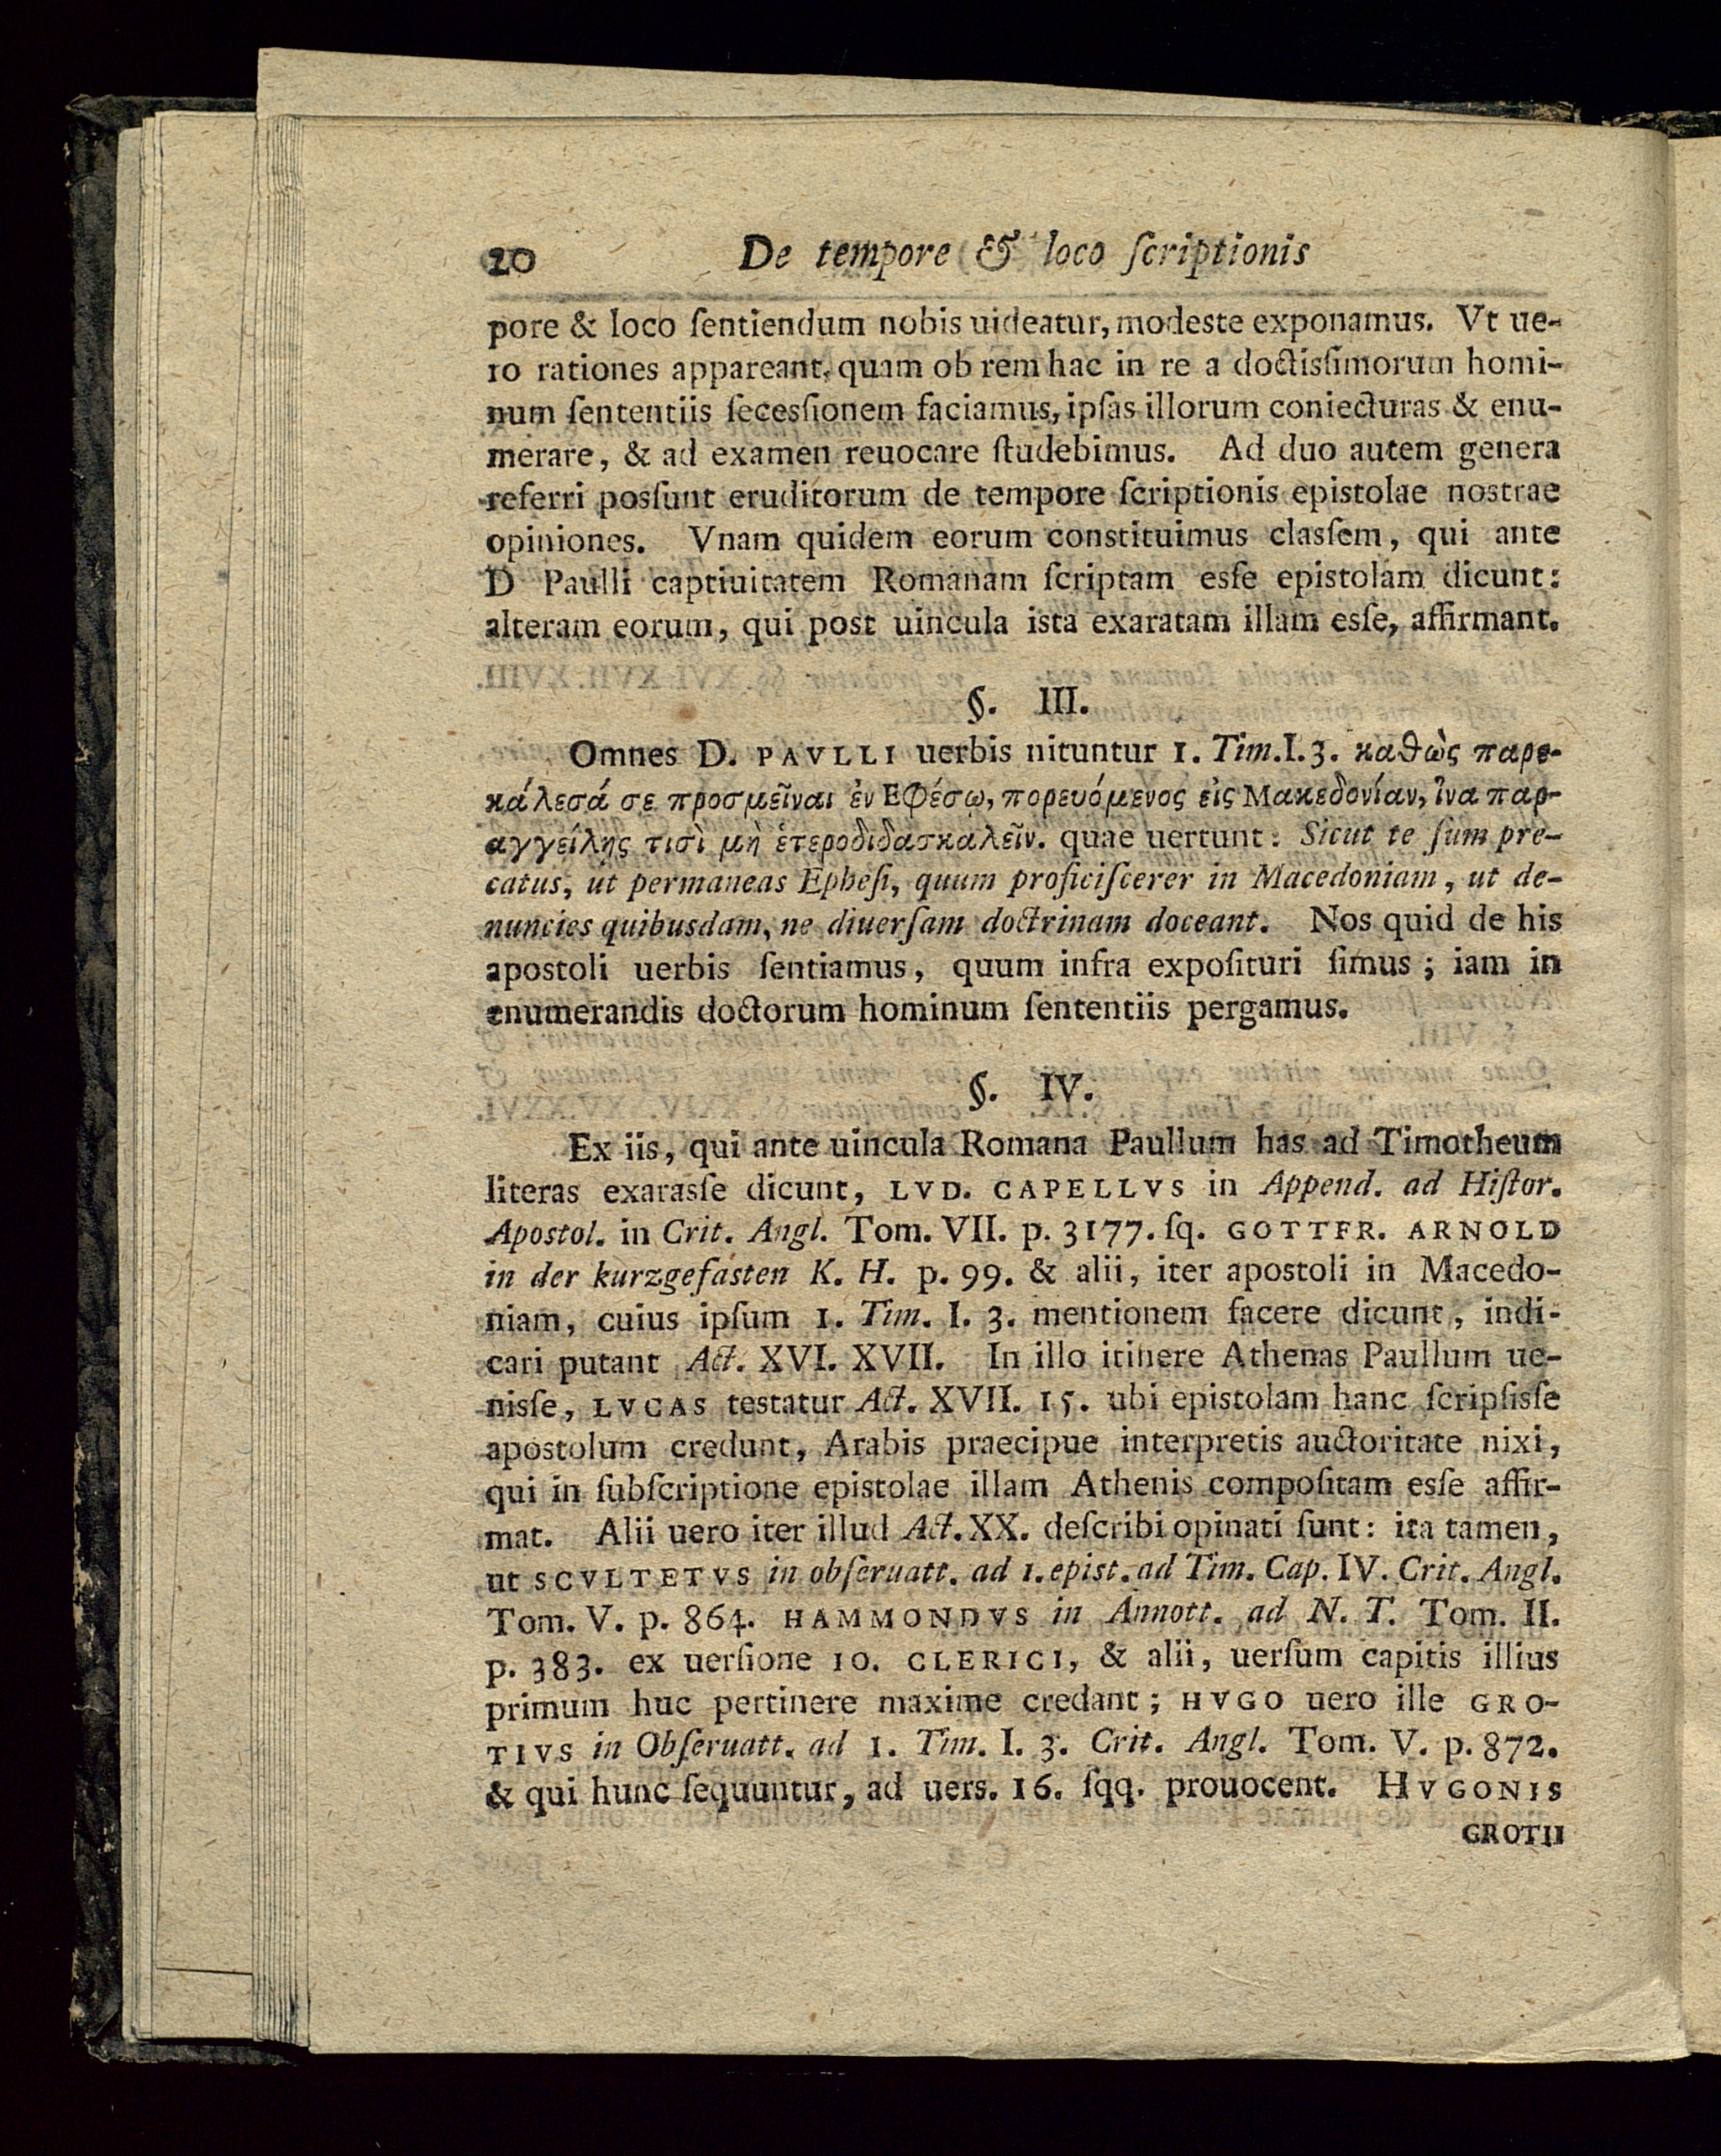 20 De tempore & loco ſcriptionis
pore & loco ſentiendum nobis uideatur, modeste exponamus. Vt ue-
ro rationes appareant, quam ob rem hac in re a doctisſimorum homi-
num ſententiis ſecesſionem faciamus, ipſas illorum coniecturas & enu-
merare, & ad examen reuocare ſtudebimus. Ad duo autem genera
referri posſunt eruditorum de tempore ſcriptionis epistolae nostrae
opiniones. Vnam quidem eorum constituimus clasſem, qui ante
D Paulli captiuitatem Romanam ſcriptam esſe epistolam dicunt:
alteram eorum, qui post uincula ista exaratam illam esſe, affirmant.
§. III.
Omnes D. PAVLLI uerbis nituntur 1. Tim. I. 3. καθὼς παρε-
κάλεσά σε προσμεῖναι ἐν Εφέσῳ, πορευόμενος εἰς Μακεδονίαν, ἵνα παρ-
αγγείλῃς τισὶ μὴ ἑτεροδιδασκαλεῖν. quae uertunt: Sicut te ſum pre-
catus, ut permaneas Epheſi, quum proficiſcerer in Macedoniam, ut de-
nuncies quibusdam, ne diuerſam doctrinam doceant. Nos quid de his
apostoli uerbis ſentiamus, quum infra expoſituri ſimus; iam in
enumerandis doctorum hominum ſententiis pergamus.
§. IV.
Ex iis, qui ante uincula Romana Paullum has ad Timotheum
literas exarasſe dicunt, LVD. CAPELLVS in Append. ad Hiſtor.
Apostol. in Crit. Angl. Tom. VII. p. 3177. ſq. GOTTFR. ARNOLD
in der kurzgefasten K. H. p. 99. & alii, iter apostoli in Macedo-
niam, cuius ipſum 1. Tim. I. 3. mentionem facere dicunt, indi-
cari putant Act. XVI. XVII. In illo itinere Athenas Paullum ue-
nisſe, LVCAS testatur Act. XVII. 15. ubi epistolam hanc ſcripſisſe
apostolum credunt, Arabis praecipue interpretis auctoritate nixi,
qui in ſubſcriptione epistolae illam Athenis compoſitam esſe affir-
mat. Alii uero iter illud Act. XX. deſcribi opinati ſunt: ita tamen,
ut SCVLTETVS in obſeruatt. ad 1. epist. ad Tim. Cap. IV. Crit. Angl.
Tom. V. p. 864. HAMMONDVS in Annott. ad N. T. Tom. II.
p. 383. ex uerſione IO. CLERICI, & alii, uerſum capitis illius
primum huc pertinere maxime credant; HVGO uero ille GRO-
TIVS in Obſeruatt. ad 1. Tim. I. 3. Crit. Angl. Tom. V. p. 872.
& qui hunc ſequuntur, ad uers. 16. ſqq. prouocent. HVGONIS
GROTII